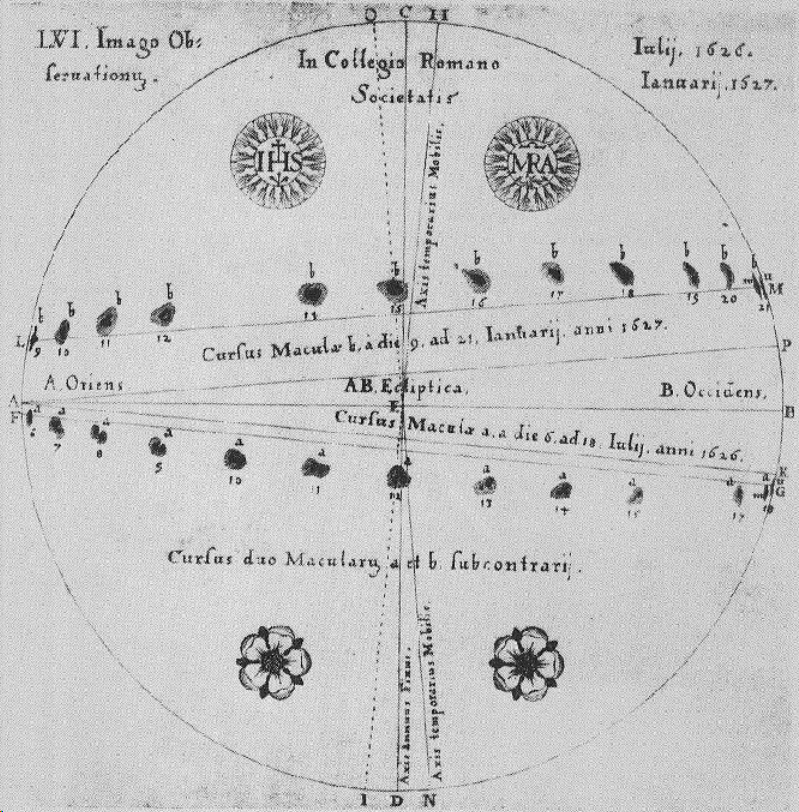 O C H
LVI. Imago Ob:
seruationũ.
In Collegio Romano
Societatis
Iulij. 1626.
Ianuarij. 1627.
IHS
MRA
Axis temporarius Mobilis.
b b b b b b b b b b b b
L 9 10 11 12 14 15 16 17 18 19 20 21 m n M
Cursus Maculæ b, à die 9. ad 21, Ianuarij. anni 1627.
P
A. Oriens.
AB. Ecliptica.
B. Occidens.
A E B
F
Cursus Maculæ a, a die 6. ad 18. Iulij. anni 1626.
a a a a a a a a a a
6 7 8 9 10 11 12 13 14 15 17 18 m n G K
Cursus duo Macularũ a et b. subcontrarij.
Axis Annuus Fixus.
Axis temporarius Mobilis.
I D N